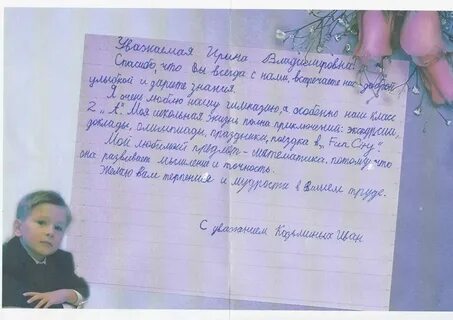 Уважаемая Ирина Владимировна!
Спасибо, что Вы всегда с нами, встречаете нас доброй
улыбкой и дарите знания.
Я очень люблю нашу гимназию, а особенно наш класс
2 „А“. Моя школьная жизнь полна приключений: экскурсии,
доклады, олимпиады, праздники, поездка в „Fun City“
Мой любимый предмет - математика, потому что
она развивает мышление и точность.
Желаю вам терпения и мудрости в Вашем труде.
С уважением Козьминых Иван